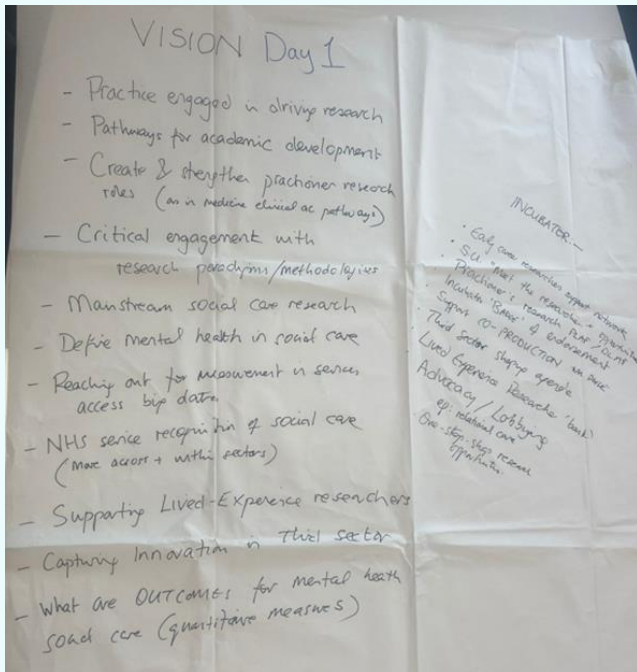 VISION Day 1
- Practice engaged in driving research
- Pathways for academic development
- Create & strengthen practioner research
roles (as in medicine clinical ac pathways)
- Critical engagement with
research paradigms/methodologies
- Mainstream social care research
- Define mental health in social care
- Reaching out for measurement in services
access big data
- NHS service recognition of social care
(More across + within sectors)
- Supporting Lived-Experience researchers
- Capturing Innovation in Third sector
- What are OUTCOMES for mental heath
social care (quantitative measures)
INCUBATER:-
· Early career researchers support network
· S.U. "Meet the researcher" opportunities
· Practioner's research
· Incubator 'Badge' of endorsement
· Support CO-PRODUCTION
· Third Sector shaping agenda
· Lived Experience Researcher 'bank'
· Advocacy / Lobbying
eg: relational care
· One-stop-shop research
opportunities